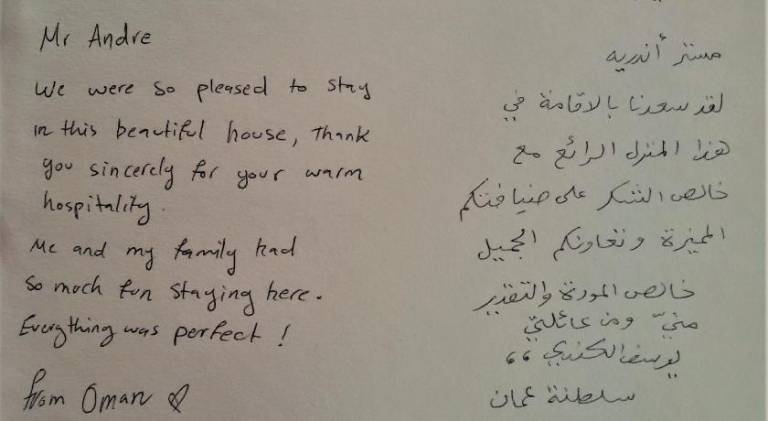 Mr Andre
We were so pleased to stay
in this beautiful house, Thank
you sincerely for your warm
hospitality.
Me and my family had
so much fun staying here.
Everything was perfect !
from Oman ♡
مستر أندريه
لقد سعدنا بالاقامة في
هذا المنزل الرائع مع
خالص الشكر على ضيافتكم
المميزة وتعاونكم الجميل
خالص المودة والتقدير
منيّ ومن عائلتي
يوسف الكندي ،،
سلطنة عمان